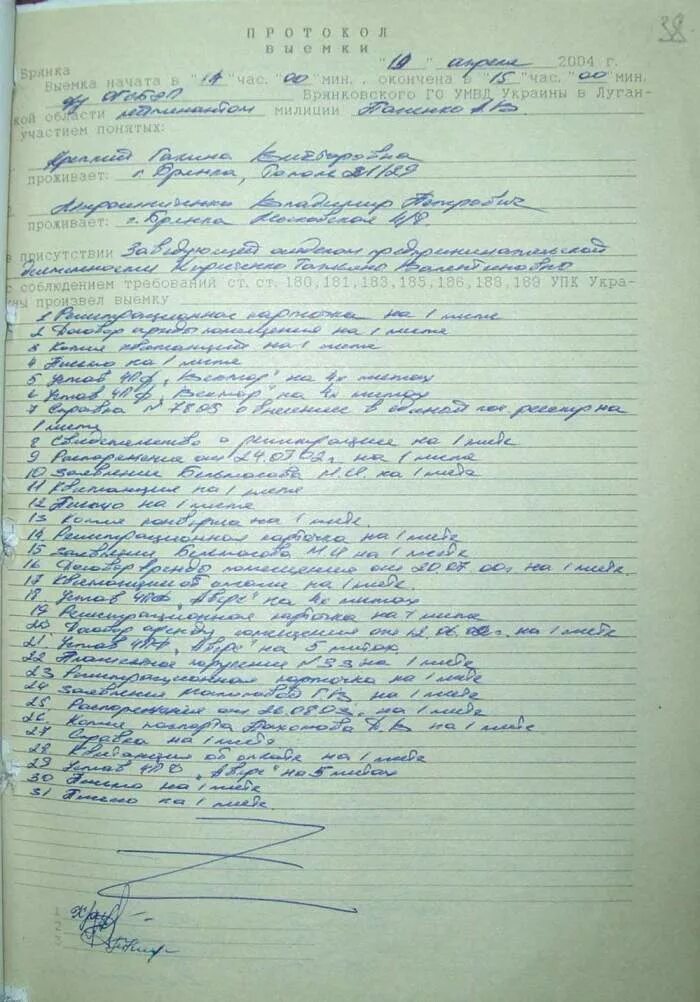 38
ПРОТОКОЛ
выемки
Брянка "19" апреля 2004 г.
Выемка начата в "14" час. "00" мин., окончена в "15" час. "00" мин.
Брянковского ГО УМВД Украины в Луган-
кой области лейтенантом милиции
участием понятых:
Галина Викторовна
проживает: г. Брянка, 21/29
Владимир Петрович
проживает: г. Брянка Московская
в присутствии Заведующей отделом предпринимательской
деятельности Кириченко Татьяно Валентиновно
с соблюдением требований ст.ст. 180,181,183,185,186,188,189 УПК Укра-
ины произвел выемку
1 Регистрационная карточка на 1 листе
2 Договор аренды помещения на 1 листе
3 Копия квитанции на 1 листе
4 Письмо на 1 листе
5 Устав ЧПФ „Вектор" на 4х листах
6 Устав ЧПФ „Вектор" на 4х листах
7 Справка № 7803 о внесении в единой гос. регистр на
1 листе
8 Свидетельство о регистрации на 1 листе
9 Распоряжение от 24.07.02г. на 1 листе
10 Заявление М.И. на 1 листе
11 Квитанция на 1 листе
12 Письмо на 1 листе
13 Копия конверта на 1 листе.
14 Регистрационная карточка на 1 листе
15 Заявление М.И. на 1 листе
16 Договор аренды помещения от 20.07.00г. на 1 листе.
17 Квитанция об оплате на 1 листе.
18 Устав ЧПФ „Аверс" на 4х листах
19 Регистрационная карточка на 1 листе
20 Договор аренды помещения от на 1 листе
21 Устав ЧПФ „Аверс" на 5 листах
22 Платежное поручение №33 на 1 листе
23 Регистрационная карточка на 1 листе
24 Заявление Г.В. на 1 листе
25 Распоряжение от 26.08.03г. на 1 листе
26 Копия паспорта на 1 листе
27 Справка на 1 листе
28 Квитанция об оплате на 1 листе
29 Устав ЧПФ „Аверс" на 5 листах
30 Письмо на 1 листе
31 Письмо на 1 листе